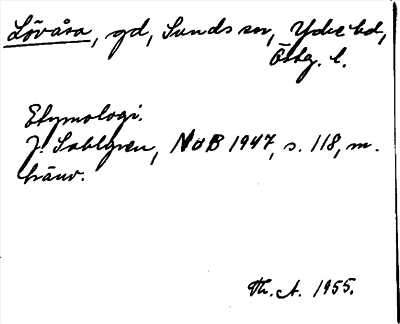 Lövåsa, gd, Sunds sn, Ydre hd,
Östg. l.
Etymologi.
J. Sahlgren, NoB 1947, s. 118, m.
hänv.
Th. A. 1955.